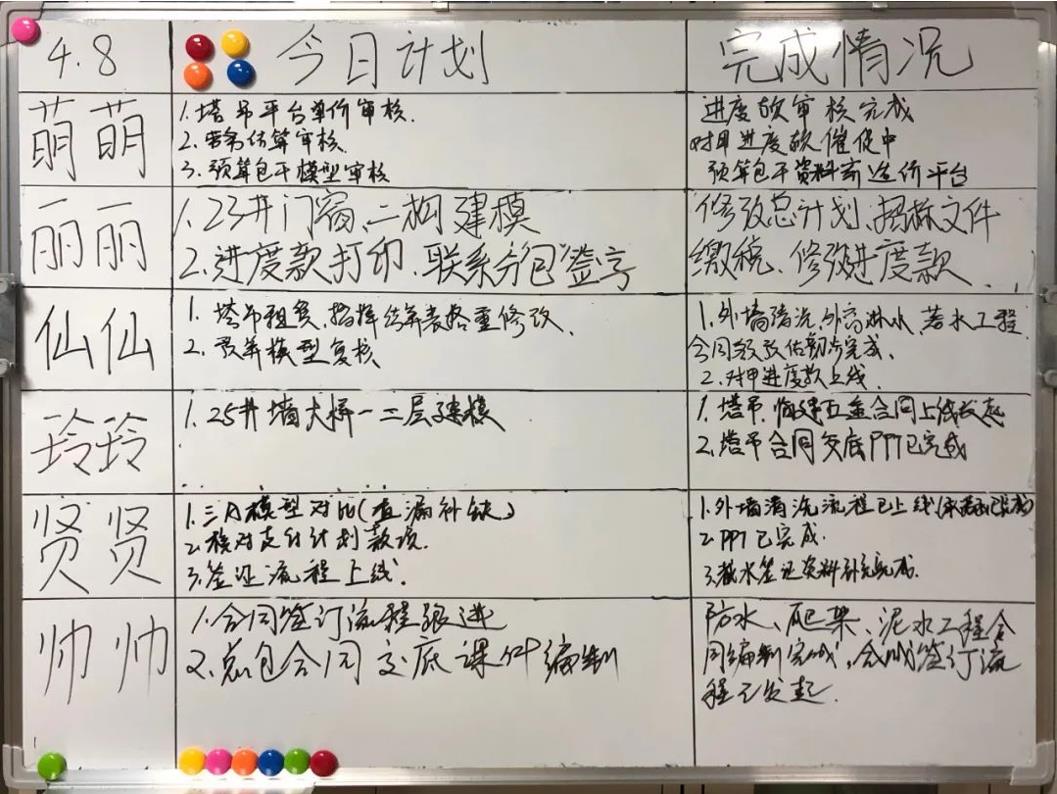 4.8 今日计划 完成情况
萌萌
1.塔吊平台单价审核.
2.劳务估算审核.
3.预算包干模型审核
进度款审核完成
对甲进度款催促中
预算包干资料寄造价平台
丽丽
1.23井门窗、二构建模
2.进度款打印、联系分包签字
修改总计划、招标文件
缴税、修改进度款
仙仙
1.塔吊租赁、指挥结算表格重修改、
2.预算模型复核
1.外墙清洗、外高淋水、若水工程
合同 完成、
2.对甲进度款上线、
玲玲
1.25井墙大样一二层建模
1.塔吊、临建五金合同上线发起
2.塔吊合同交底PPT已完成
贤贤
1.三A模型对比(查漏补缺)
2.核对支付计划款项.
3.签证流程上线.
1.外墙清洗流程已上线
2.PPT已完成.
3.截水签证资料补充完成.
帅帅
1.合同签订流程跟进
2.总包合同交底课件编制
防水、爬架、泥水工程合
同编制完成,合成签订流
程已发起.